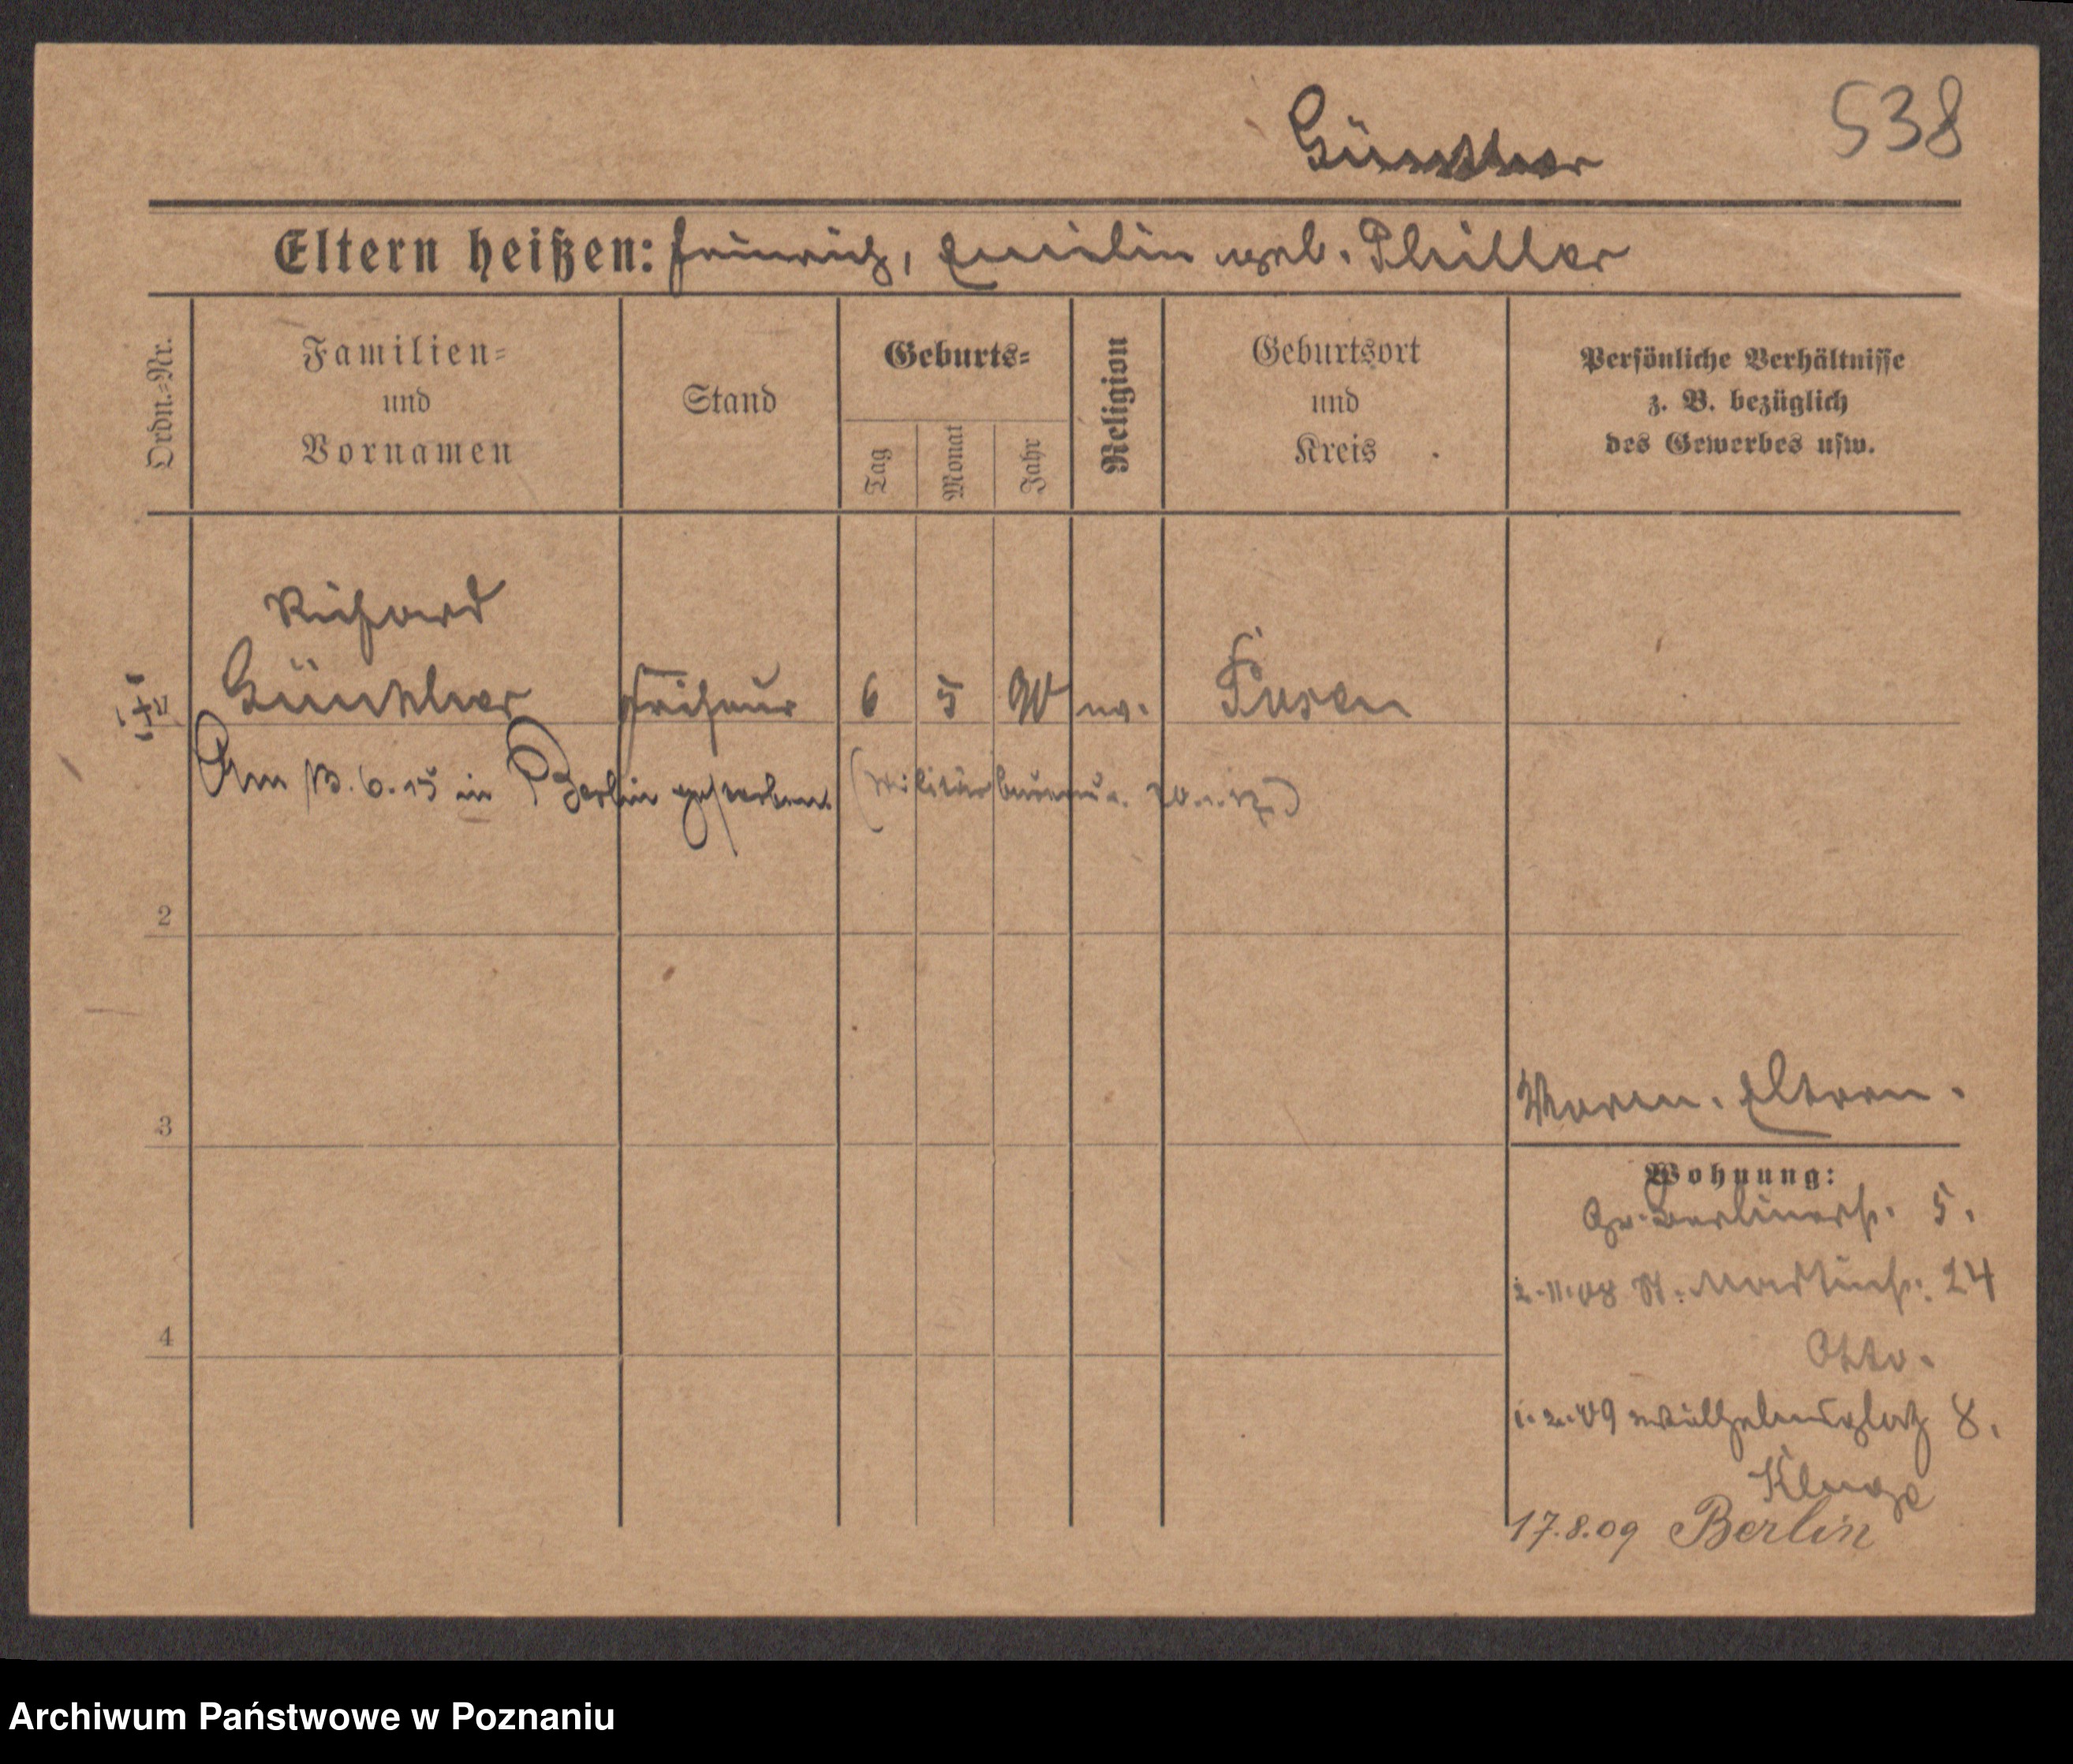 Günther 538
Eltern heißen: Heinrich, Emilie geb. Thiller
Ordn.-Nr.
Familien-
und
Vornamen
Stand
Geburts-
Tag
Monat
Jahr
Religion
Geburtsort
und
Kreis
Persönliche Verhältnisse
z. B. bezüglich
des Gewerbes usw.
Richard
Günther Friseur 6 5 90 ev. Posen
Am 13.6.15 in Berlin gestorben. (Militärbureau
2
3
4
Vorm. Eltern.
Wohnung:
Gr. Berlinerstr. 5.
2.11.08 St. Martinstr. 24
Otto.
1.2.09 Wilhelmsplatz 8.
Kluge
17.8.09 Berlin
Archiwum Państwowe w Poznaniu